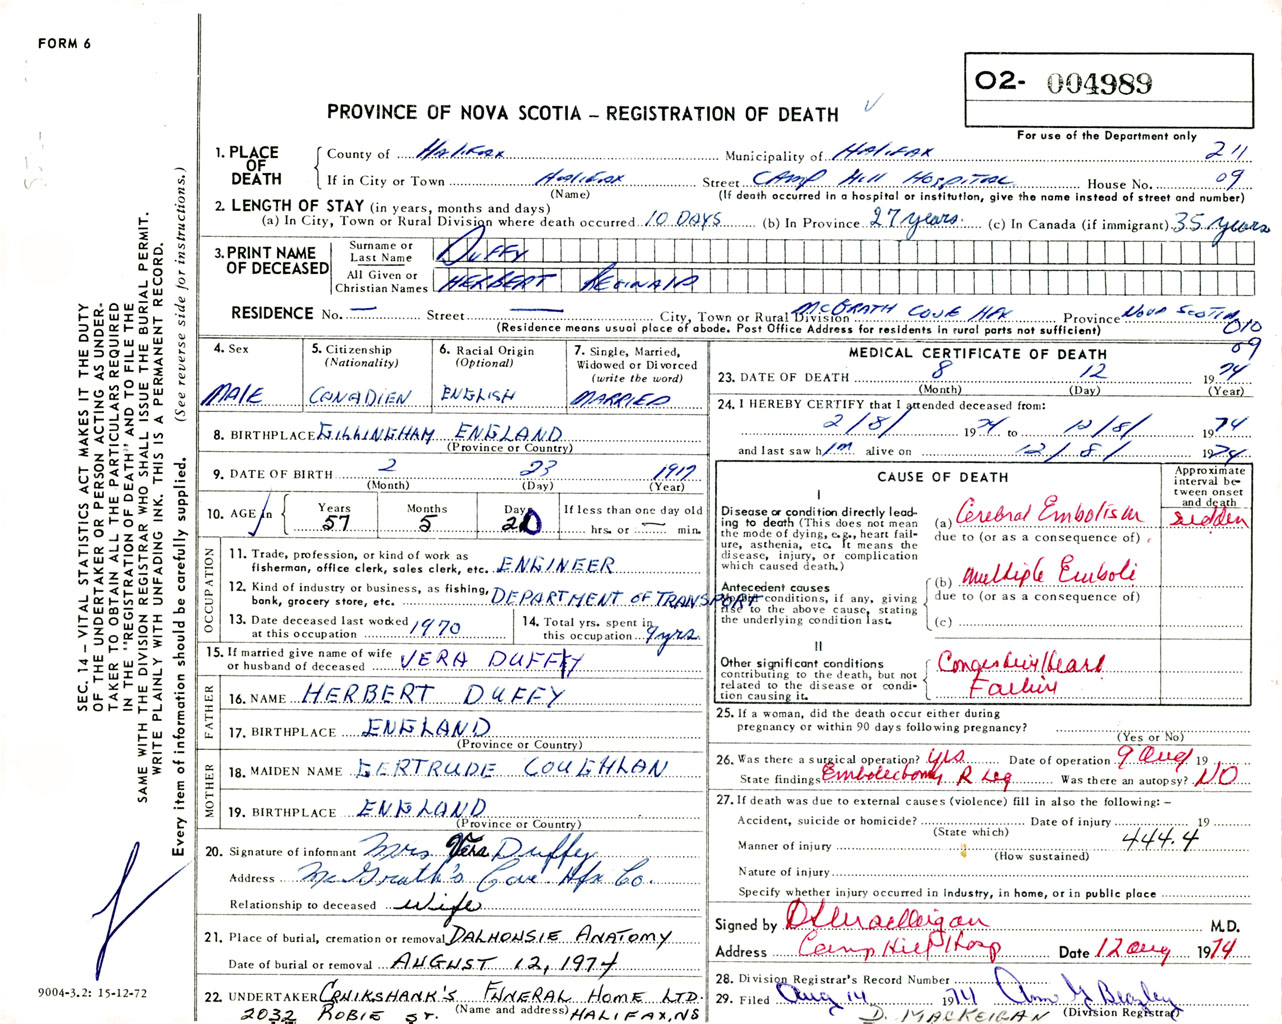 FORM 6
O2- 004989
For use of the Department only
PROVINCE OF NOVA SCOTIA – REGISTRATION OF DEATH
SEC. 14 – VITAL STATISTICS ACT MAKES IT THE DUTY
OF THE UNDERTAKER OR PERSON ACTING AS UNDER-
TAKER TO OBTAIN ALL THE PARTICULARS REQUIRED
IN THE "REGISTRATION OF DEATH" AND TO FILE THE
SAME WITH THE DIVISION REGISTRAR WHO SHALL ISSUE THE BURIAL PERMIT.
WRITE PLAINLY WITH UNFADING INK. THIS IS A PERMANENT RECORD.
Every item of information should be carefully supplied. (See reverse side for instructions.)
1. PLACE OF DEATH
County of Halifax Municipality of Halifax 211
If in City or Town Halifax Street Camp Hill Hospital House No. 09
(Name) (If death occurred in a hospital or institution, give the name instead of street and number)
2. LENGTH OF STAY (in years, months and days)
(a) In City, Town or Rural Division where death occurred 10 DAYS (b) In Province 27 years. (c) In Canada (if immigrant) 35 years
3. PRINT NAME OF DECEASED
Surname or Last Name DUFFY
All Given or Christian Names HERBERT REGINALD
RESIDENCE No. — Street — City, Town or Rural Division McGRATH COVE HFX Province NOVA SCOTIA
010
09
(Residence means usual place of abode. Post Office Address for residents in rural parts not sufficient)
4. Sex
MALE
5. Citizenship
(Nationality)
CANADIEN
6. Racial Origin
(Optional)
ENGLISH
7. Single, Married,
Widowed or Divorced
(write the word)
MARRIED
8. BIRTHPLACE GILLINGHAM ENGLAND
(Province or Country)
9. DATE OF BIRTH 2 23 1917
(Month) (Day) (Year)
10. AGE in Years 57 Months 5 Days 20
If less than one day old
hrs. or — min.
OCCUPATION
11. Trade, profession, or kind of work as
fisherman, office clerk, sales clerk, etc. ENGINEER
12. Kind of industry or business, as fishing,
bank, grocery store, etc. DEPARTMENT OF TRANSPORT
13. Date deceased last worked
at this occupation 1970
14. Total yrs. spent in
this occupation 9 yrs.
15. If married give name of wife
or husband of deceased VERA DUFFY
FATHER
16. NAME HERBERT DUFFY
17. BIRTHPLACE ENGLAND
(Province or Country)
MOTHER
18. MAIDEN NAME GERTRUDE COUGHLAN
19. BIRTHPLACE ENGLAND
(Province or Country)
20. Signature of informant Mrs Vera Duffy
Address McGrath's Cove Hfx Co.
Relationship to deceased Wife
21. Place of burial, cremation or removal DALHOUSIE ANATOMY
Date of burial or removal AUGUST 12, 1974
22. UNDERTAKER CRUIKSHANK'S FUNERAL HOME LTD.
(Name and address)
2032 ROBIE ST. HALIFAX, NS
MEDICAL CERTIFICATE OF DEATH
23. DATE OF DEATH 8 12 1974
(Month) (Day) (Year)
24. I HEREBY CERTIFY that I attended deceased from:
2/8/ 1974 to 12/8/ 1974
and last saw him alive on 12/8/ 1974
CAUSE OF DEATH
Approximate
interval be-
tween onset
and death
I
Disease or condition directly lead-
ing to death (This does not mean
the mode of dying, e.g., heart fail-
ure, asthenia, etc. It means the
disease, injury, or complication
which caused death.)
(a) Cerebral Embolism sudden
due to (or as a consequence of)
Antecedent causes
Morbid conditions, if any, giving
rise to the above cause, stating
the underlying condition last.
(b) Multiple Emboli
due to (or as a consequence of)
(c)
II
Other significant conditions
contributing to the death, but not
related to the disease or condi-
tion causing it.
Congestive Heart
Failure
25. If a woman, did the death occur either during
pregnancy or within 90 days following pregnancy?
(Yes or No)
26. Was there a surgical operation? yes Date of operation 9 Aug 19
State findings Embolectomy R Leg Was there an autopsy? NO
27. If death was due to external causes (violence) fill in also the following: –
Accident, suicide or homicide? Date of injury 19
(State which) 444.4
Manner of injury
(How sustained)
Nature of injury
Specify whether injury occurred in industry, in home, or in public place
Signed by M.D.
Address Camp Hill Hosp Date 12 Aug 1974
28. Division Registrar's Record Number
29. Filed Aug 14 1974 Ann G Beazley
(Division Registrar)
D. MACKEIGAN
9004-3.2: 15-12-72